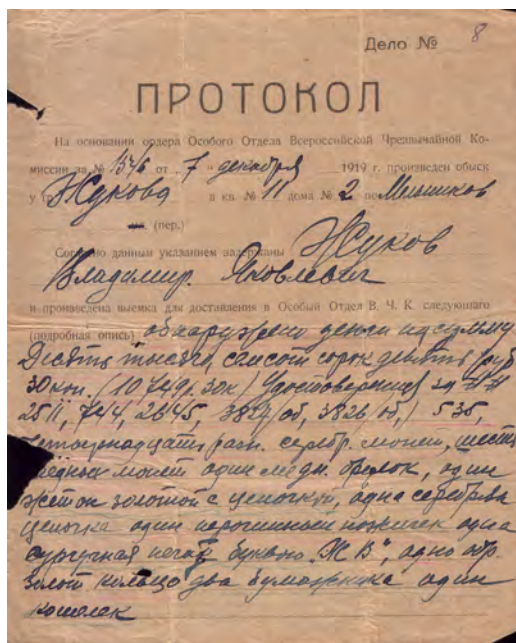 Дело № 8
ПРОТОКОЛ
На основании ордера Особого Отдела Всероссийской Чрезвычайной Ко-
миссии за № от 7 декабря 1919 г. произведен обыск
у гр. Жукова в кв. № 11 дома № 2 по
(пер.)
Согласно данным указаниям задержаны Жуков
Владимир Яковлевич
и произведена выемка для доставления в Особый Отдел В. Ч. К. следующаго
(подробная опись) обнаружено деньги на сумму
Десять тысяч семьсот сорок девять руб
30 коп. (10749р. 30к) Удостоверения за №№
2511, 744, 2645, 3827/об, 3826/об, 535,
разн. серебр. монет, шесть
медных монет один медн. брелок, один
жетон золотой с цепочкой, одна серебрян
цепочка один перочинный ножичек одна
сургучная печать буквою "Ж В", одно обр.
золот кольцо два бумажника один
кошелек